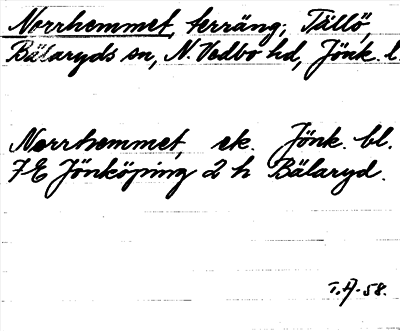 Norrhemmet, terräng; Tällö,
Bälaryds sn, N. Vedbo hd, Jönk. l.
Norrhemmet, ek. Jönk. bl.
7E Jönköping 2 h Bälaryd.
58.